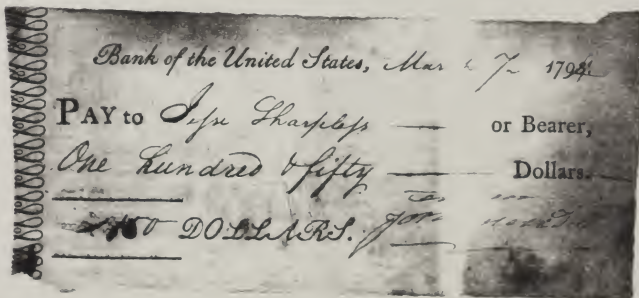 Bank of the United States, Mar 7 1794
PAY to Jesse Sharpless or Bearer,
One hundred & fifty Dollars.
150 DOLLARS.